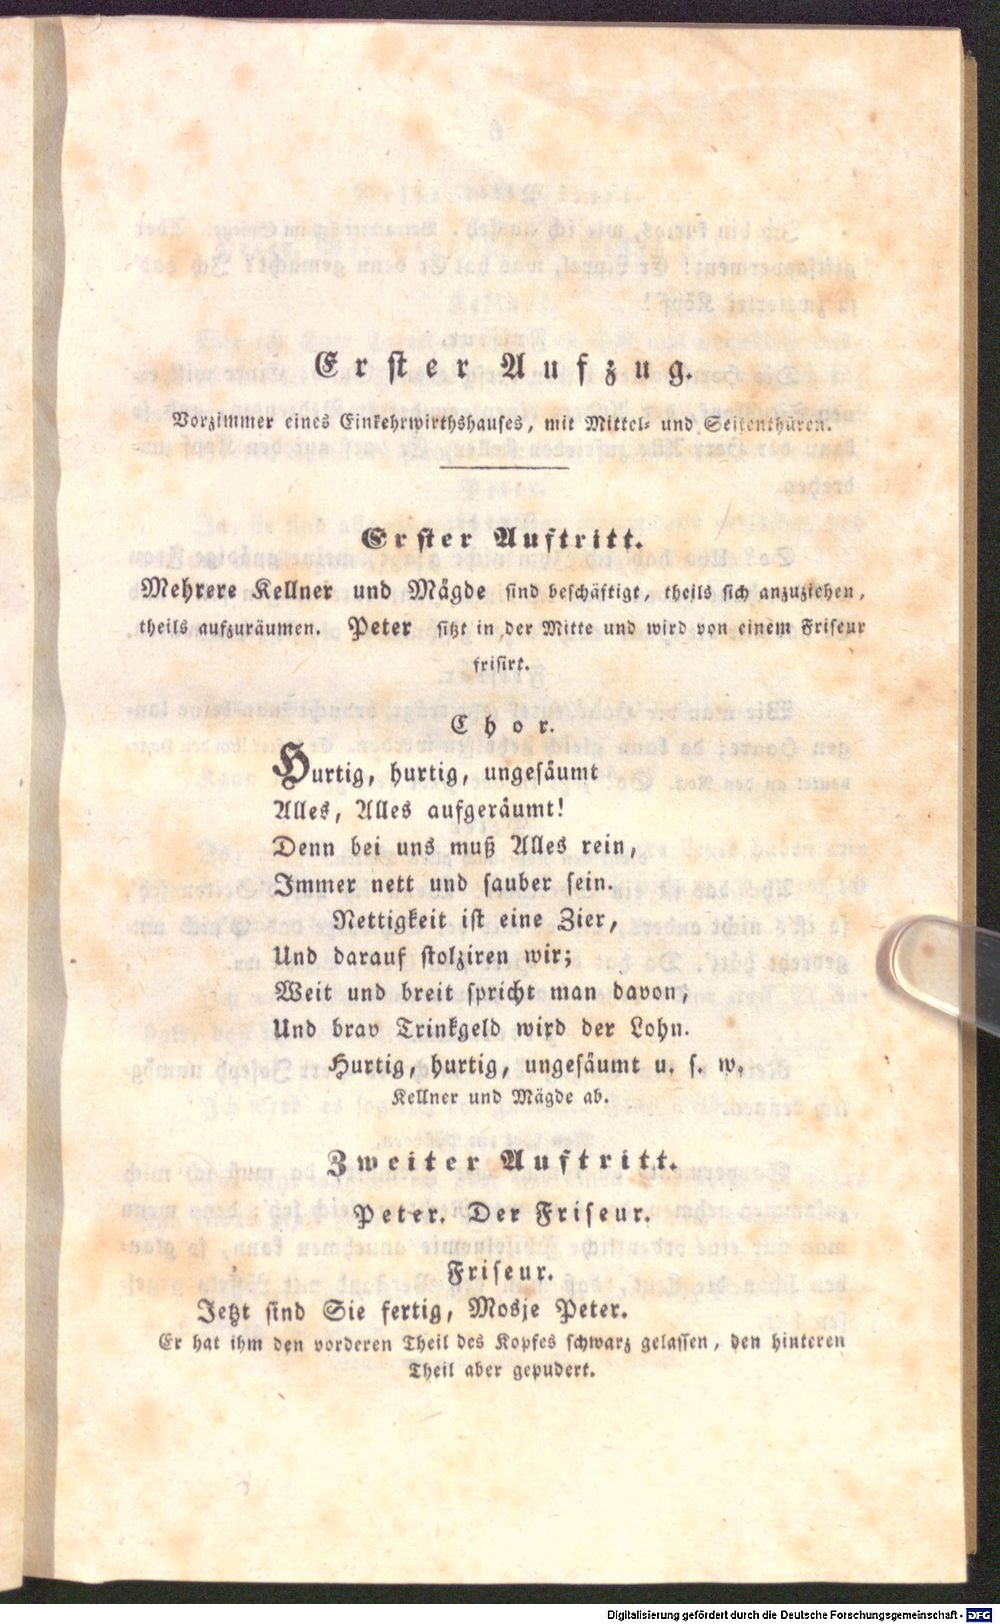 Erster Aufzug.
Vorzimmer eines Einkehrwirthshauses, mit Mittel- und Seitenthüren.
Erster Auftritt.
Mehrere Kellner und Mägde sind beschäftigt, theils sich anzuziehen,
theils aufzuräumen. Peter sitzt in der Mitte und wird von einem Friseur
frisirt.
Chor.
Hurtig, hurtig, ungesäumt
Alles, Alles aufgeräumt!
Denn bei uns muß Alles rein,
Immer nett und sauber sein.
Nettigkeit ist eine Zier,
Und darauf stolziren wir;
Weit und breit spricht man davon,
Und brav Trinkgeld wird der Lohn.
Hurtig, hurtig, ungesäumt u. s. w.
Kellner und Mägde ab.
Zweiter Auftritt.
Peter. Der Friseur.
Friseur.
Jetzt sind Sie fertig, Mosje Peter.
Er hat ihm den vorderen Theil des Kopfes schwarz gelassen, den hinteren
Theil aber gepudert.
Digitalisierung gefördert durch die Deutsche Forschungsgemeinschaft - DFG